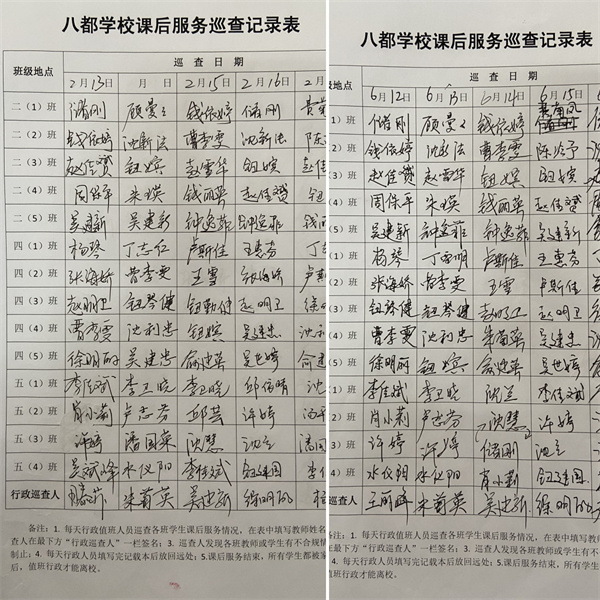 八都学校课后服务巡查记录表
班级地点 巡查日期
2月13日 月 日 2月15日 2月16日 2月
二（1）班 储刚 顾曼曼 钱依婷 储刚
二（2）班 钱依婷 沈新法 曹李雯 沈新法
二（3）班 赵佳赟 钮嫔 赵雪华 钮嫔 赵佳
二（4）班 周保平 朱瑛 钱丽英 赵佳赟 钮
二（5）班 吴建新 吴建新 钟逸菲 钟逸菲 钱
四（1）班 杨琴 丁志红 卢斯佳 王惠芬 丁
四（2）班 张海娇 曹李雯 王雪 张海娇 卢斯
四（3）班 赵明卫 钮琴健 钮勤健 赵明卫 徐
四（4）班 曹李雯 沈利忠 钮嫔 吴建忠 沈利
四（5）班 徐明丽 吴建忠 俞建英 吴世婷 俞建
五（1）班 李佳斌 李卫晓 李卫晓 邱倩晴 沈
五（2）班 肖小莉 卢志芬 邱芸 许婷
五（3）班 许婷 潘国英 沈慧 沈兰 潘国
五（4）班 吴斌峰 水仪阳 李佳斌 钮建国 李
行政巡查人 朱菊英 吴建新 徐明丽
备注：1. 每天行政值班人员巡查各班学生课后服务情况，在表中填写教师姓名
查人在最下方“行政巡查人”一栏签名；3. 巡查人发现各班教师或学生有不合规
制止；4. 每天行政人员填写完记载本后放回远处；5.课后服务结束，所有学生都被家
后，值班行政才能离校。
八都学校课后服务巡查记录表
级地点 巡查日期
6月12日 6月13日 6月14日 6月15日
（1）班 储刚 顾曼曼 钱依婷
（2）班 钱依婷 沈新法 曹李雯
（3）班 赵佳赟 赵雪华 钮嫔 钮嫔
（4）班 周保平 朱瑛 钱丽英 赵佳赟
（5）班 吴建新 钟逸菲 钟逸菲 吴建新
（1）班 杨琴 卢斯佳 王惠芬
（2）班 张海娇 曹李雯 王雪 卢斯佳
（3）班 钮琴健 钮琴健 赵明卫 赵明卫
（4）班 曹李雯 沈利忠 朱菊英 吴建忠
（5）班 徐明丽 钮嫔 俞建英 吴世婷
（1）班 李佳斌 李卫晓 沈兰 李佳斌
（2）班 肖小莉 卢志芬 沈慧 许婷
（3）班 许婷 许婷 储刚 沈兰
（4）班 水仪阳 水仪阳 肖小莉 钮建国
查人 王丽峰 朱菊英 吴建新 徐明丽
备注：1. 每天行政值班人员巡查各班学生课后服务情况，在表中填写
在最下方“行政巡查人”一栏签名；3. 巡查人发现各班教师或学生有
止；4. 每天行政人员填写完记载本后放回远处；5.课后服务结束，所有学
值班行政才能离校。